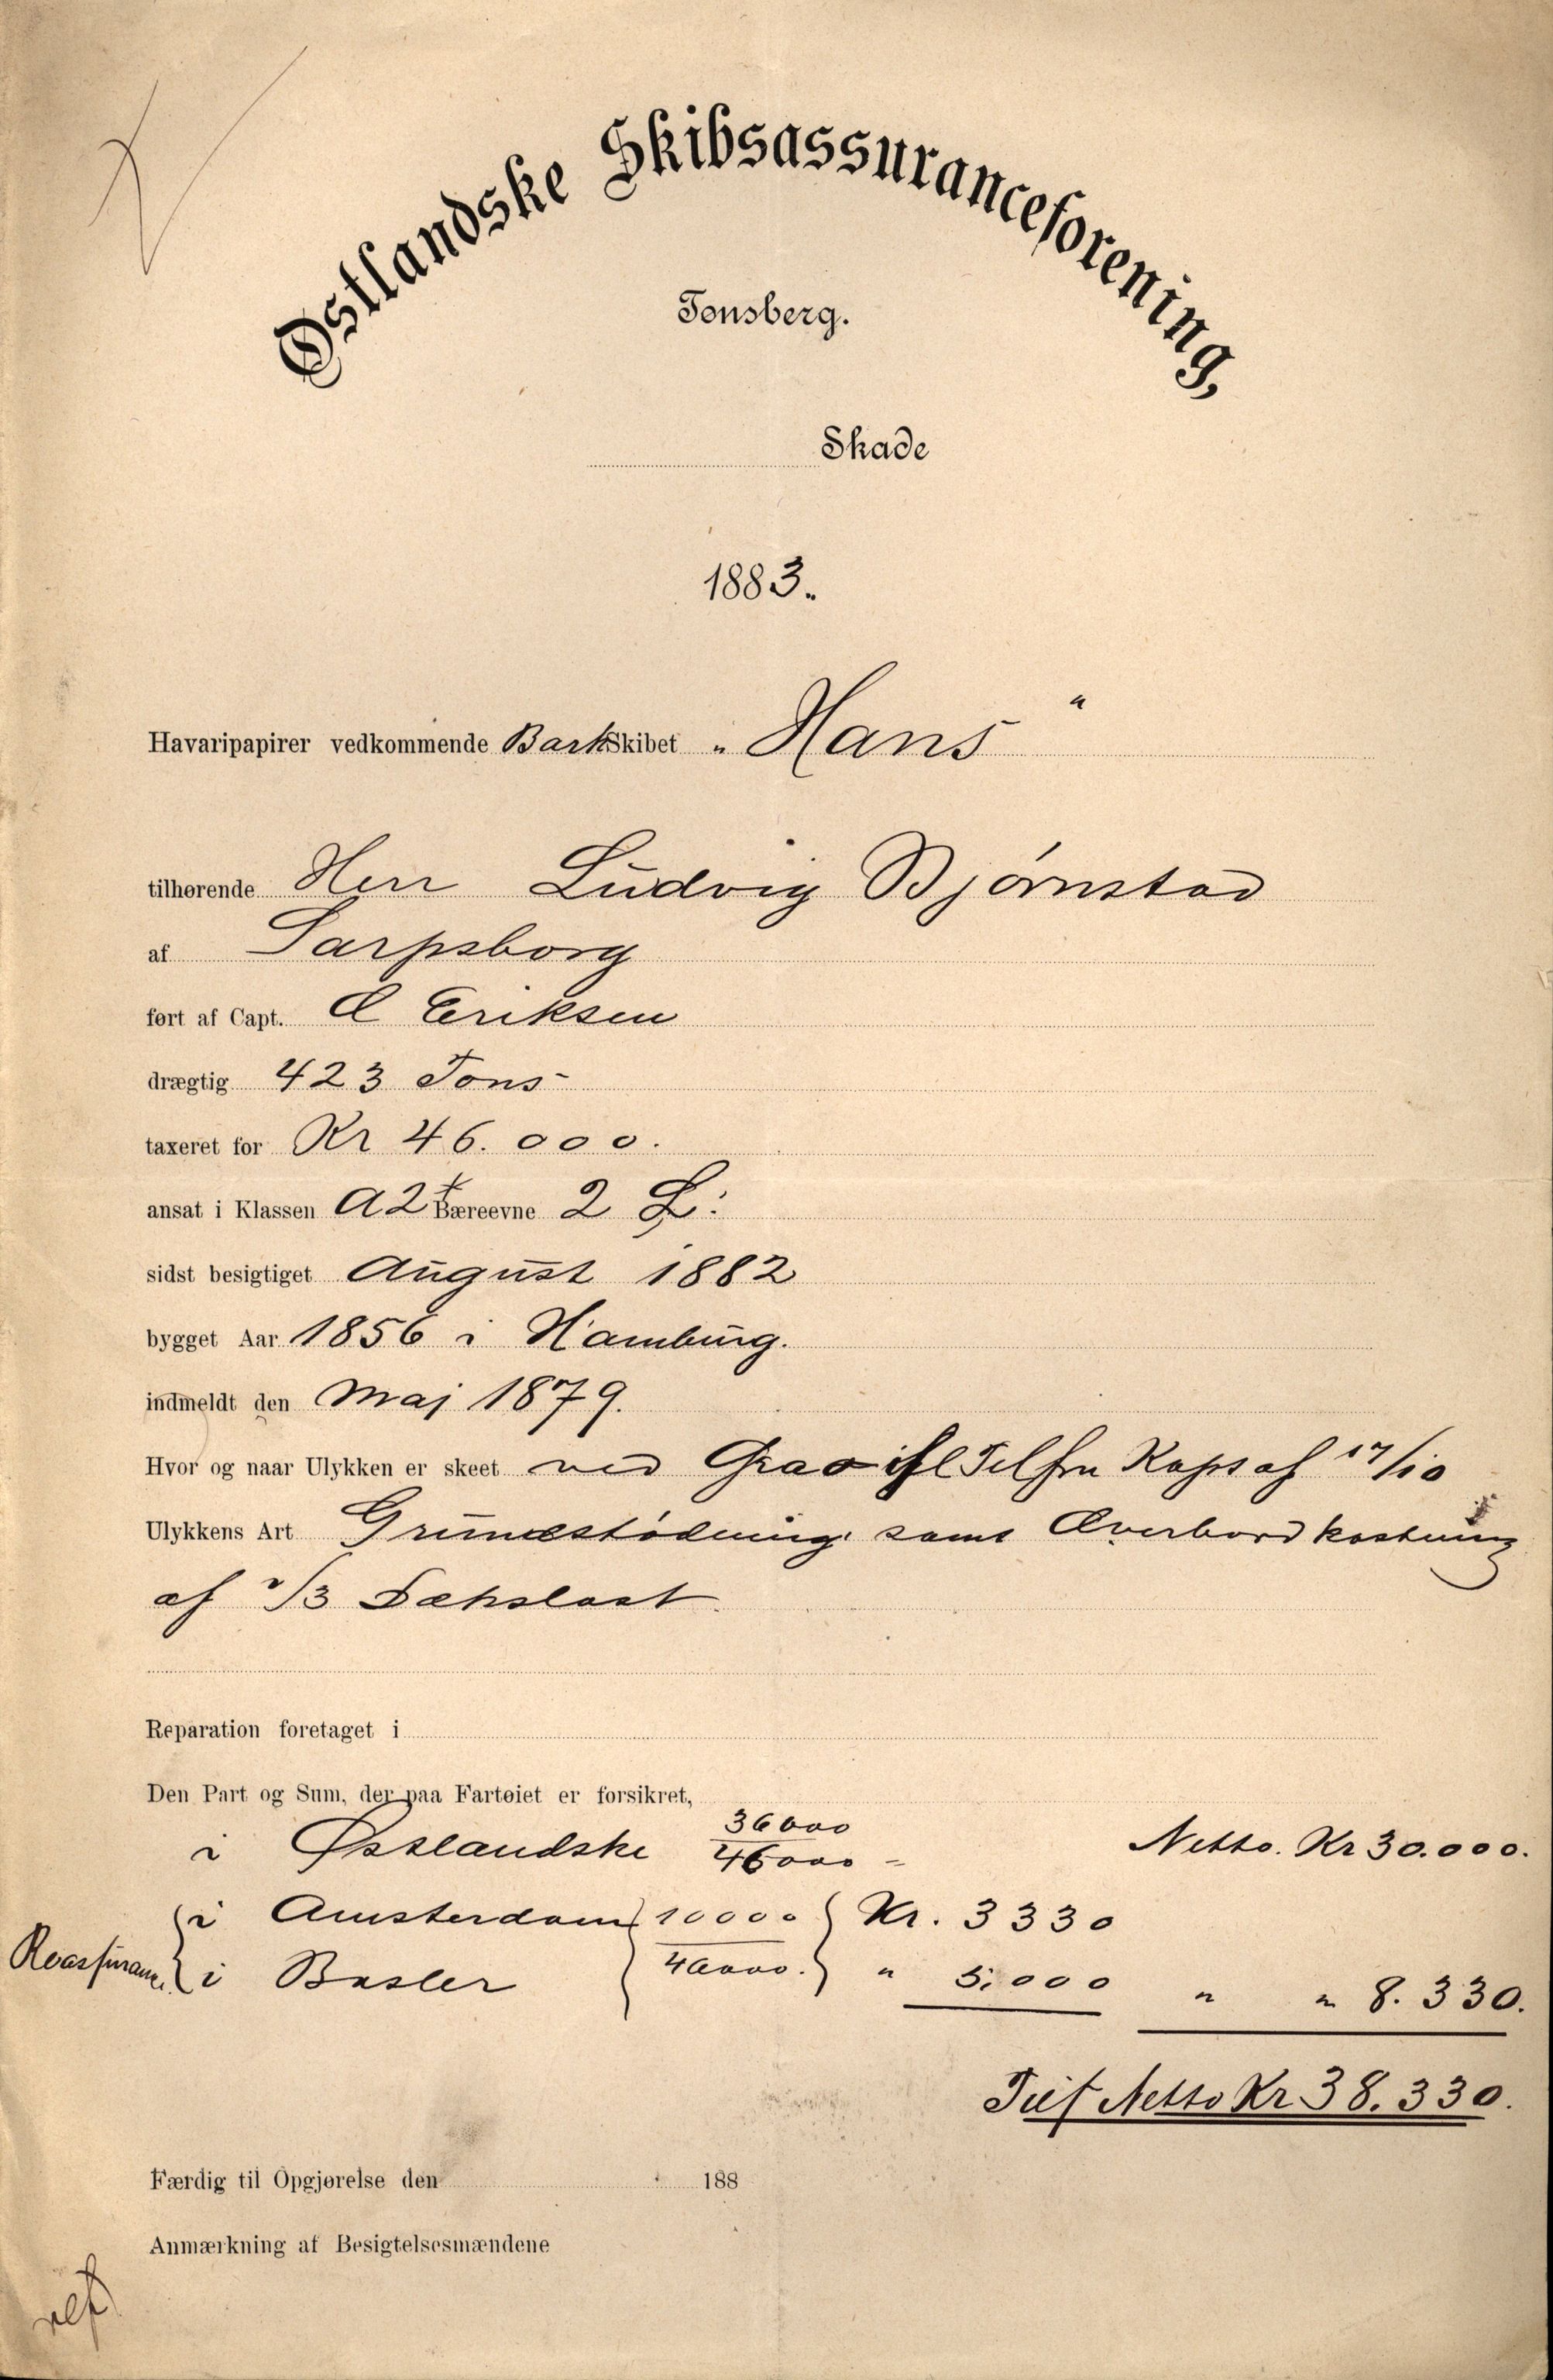 Østlandske Skibsassuranceforening,
Tønsberg.
Skade
1883.
Havaripapirer vedkommende Bark Skibet „Hans“
tilhørende Herr Ludvig Bjørnstad
af Sarpsborg
ført af Capt. C Eriksen
drægtig 423 Tons
taxeret for Kr 46.000.
ansat i Klassen A2 Bæreevne 2 L:
sidst besigtiget August 1882
bygget Aar 1856 i Hamburg.
indmeldt den Maj 1879.
Hvor og naar Ulykken er skeet ved Tel fra af 17/10
Ulykkens Art Grundstødning samt Overbordkastning
af 2/3 Dækslast
Reparation foretaget i
Den Part og Sum, der paa Fartøiet er forsikret,
i Østlandske 36000/46000 - Netto. Kr 30.000.
i Amsterdam 10000 Kr. 3330
Reassurance
i Basler 46000. " 5.000 " " 8.330.
Netto Kr 38.330.
Færdig til Opgjørelse den 188
Anmærkning af Besigtelsesmændene